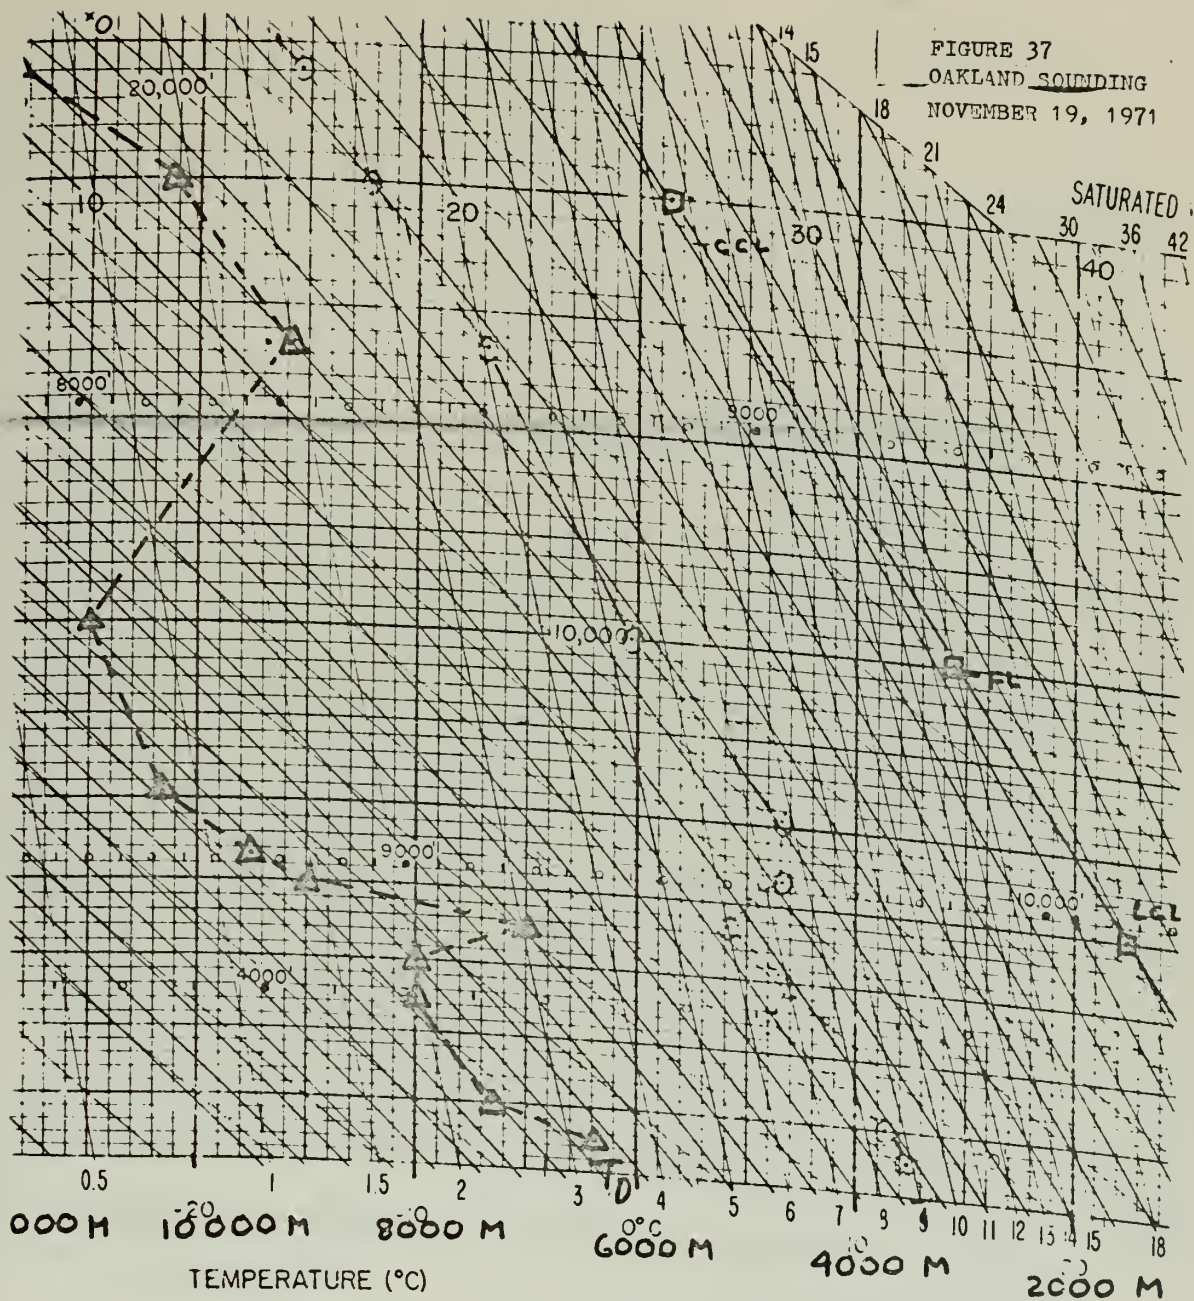 FIGURE 37
OAKLAND SOUNDING
NOVEMBER 19, 1971
14
15
18
21
24
SATURATED
30 36 42
20,000'
10
20
30
40
CCL
8000'
9000'
10,000'
FL
9000'
10,000'
LCL
4000'
TD
0.5 1 1.5 2 3 4 5 6 7 8 9 10 11 12 13 14 15 18
-20 0°C 10
000 M 10000 M 8000 M 6000 M 4000 M 2000 M
TEMPERATURE (°C)